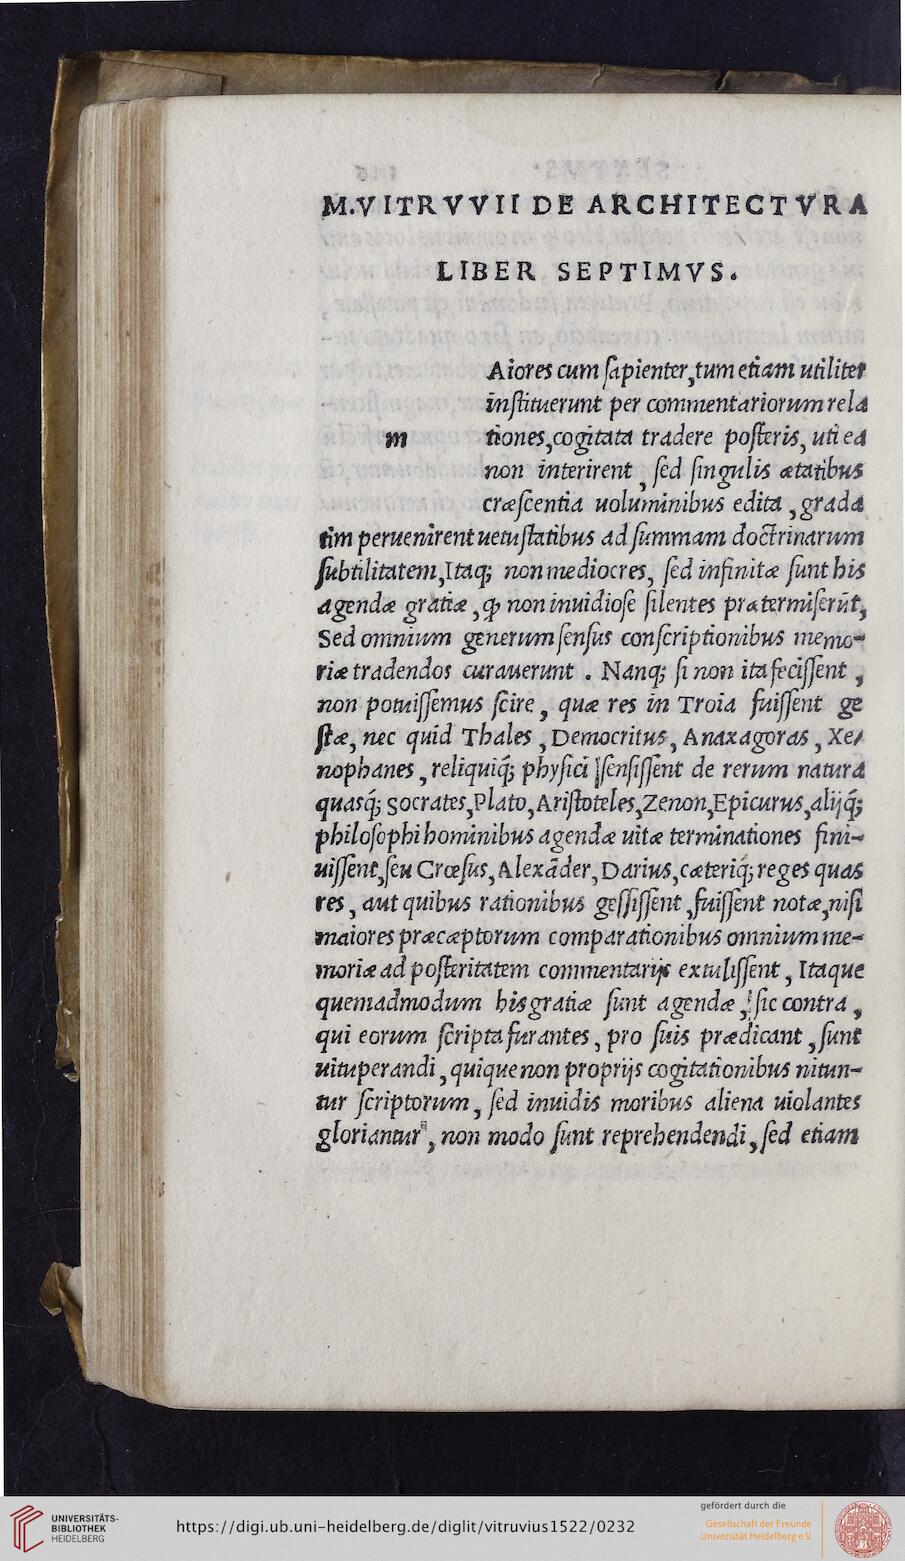 M.VITRVVII DE ARCHITECTVRA
LIBER SEPTIMVS.
m
Aiores cum ſapienter, tum etiam utiliter
inſtituerunt per commentariorum rela
tiones, cogitata tradere poſteris, uti ea
non interirent, ſed ſingulis ætatibus
cræſcentia uoluminibus edita, grada
tim peruenirent uetuſtatibus ad ſummam doctrinarum
ſubtilitatem, Itaq; non mediocres, ſed infinitæ ſunt his
agendæ gratiæ, ꝙ non inuidioſe ſilentes prætermiſerūt,
Sed omnium generum ſenſus conſcriptionibus memo-
riæ tradendos curauerunt . Nanq; ſi non ita feciſſent ,
non potuiſſemus ſcire, quæ res in Troia fuiſſent ge
ſtæ, nec quid Thales, Democritus, Anaxagoras, Xe/
nophanes, reliquiq́; phyſici ſenſiſſent de rerum natura
quasq́; Socrates, Plato, Ariſtoteles, Zenon, Epicurus, alijq́;
philoſophi hominibus agendæ uitæ terminationes fini-
uiſſent, ſeu Crœſus, Alexāder, Darius, cæteriq́; reges quas
res, aut quibus rationibus geſſiſſent, fuiſſent notæ, niſi
maiores præcæptorum comparationibus omnium me-
moriæ ad poſteritatem commentarijs extuliſſent, Itaque
quemadmodum his gratiæ ſunt agendæ, ſic contra,
qui eorum ſcripta furantes, pro ſuis prædicant, ſunt
uituperandi, quique non proprijs cogitationibus nitun-
tur ſcriptorum, ſed inuidis moribus aliena uiolantes
gloriantur, non modo ſunt reprehendendi, ſed etiam
UNIVERSITÄTS-
BIBLIOTHEK
HEIDELBERG
https://digi.ub.uni-heidelberg.de/diglit/vitruvius1522/0232
gefördert durch die
Gesellschaft der Freunde
Universität Heidelberg e.V.